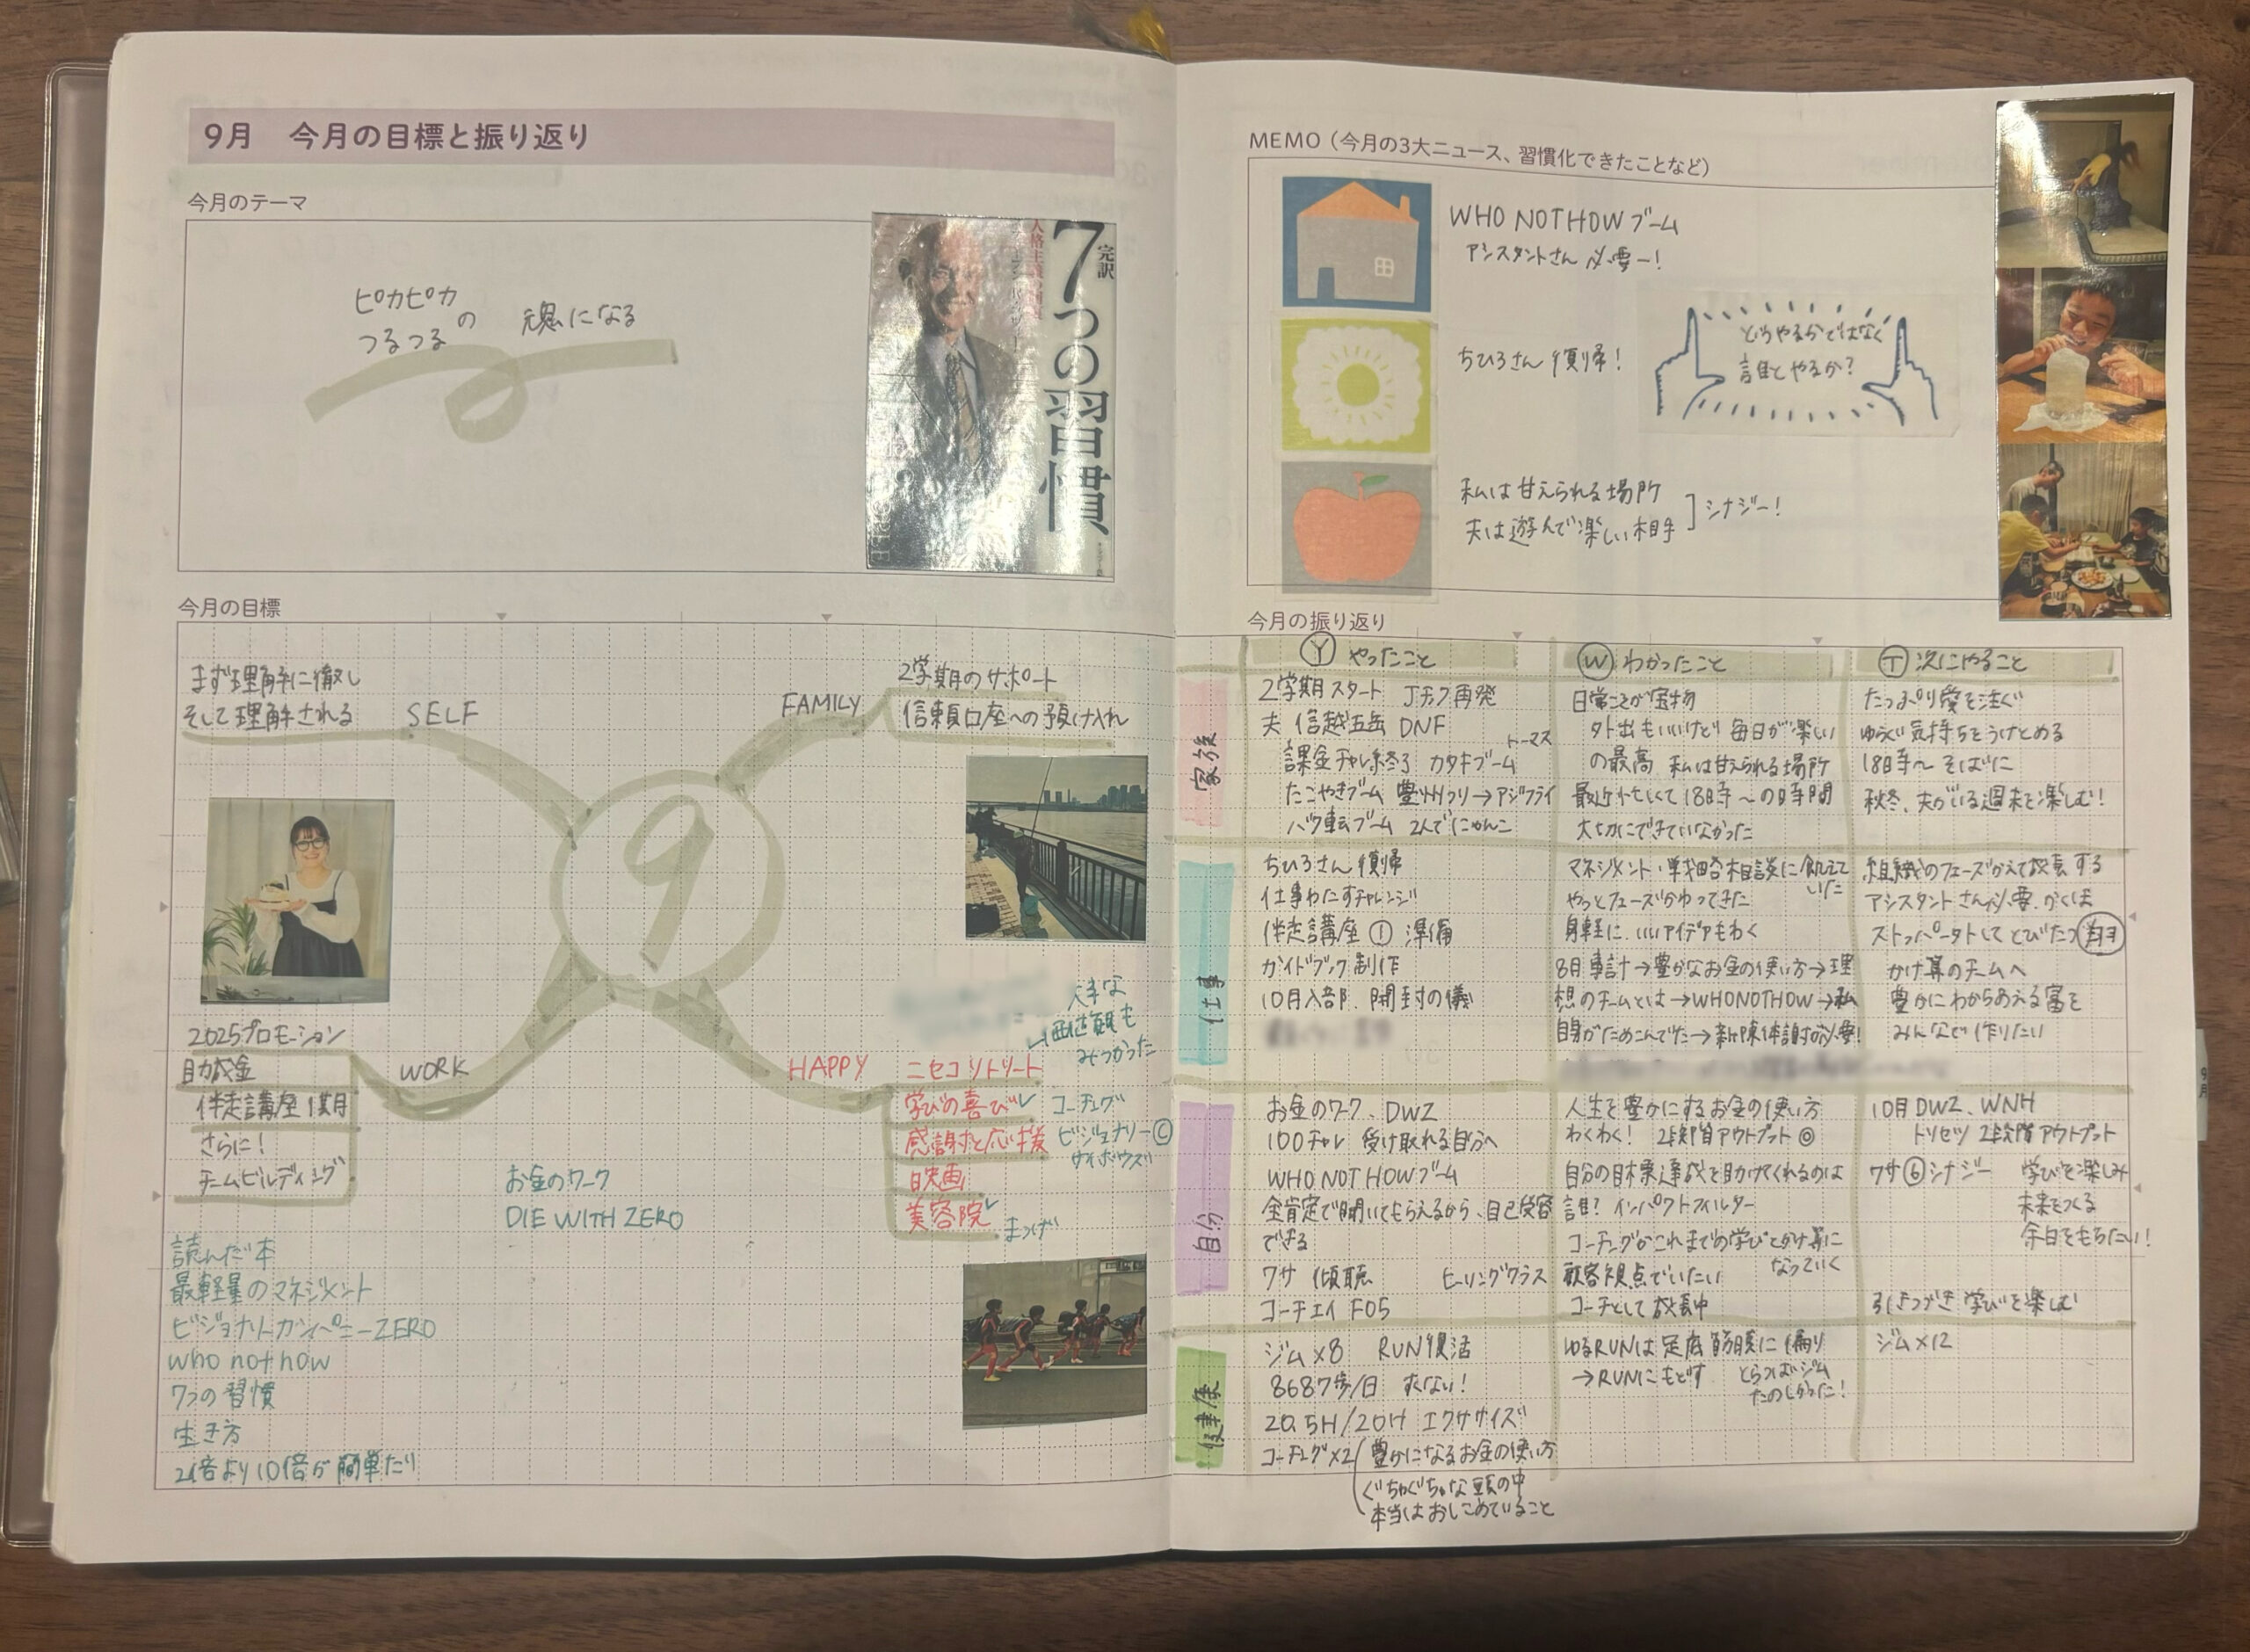 9月 今月の目標と振り返り
今月のテーマ
ピカピカ
つるつる
の 魂になる
完訳
7つの習慣
今月の目標
まず理解に徹し
そして理解される
SELF
FAMILY
2学期のサポート
信頼口座への預け入れ
9
2025プロモーション
助成金
伴走講座1期
さらに!
チームビルディング
WORK
お金のワーク
DIE WITH ZERO
HAPPY
ニセコリトリート
学びの喜び✓
感謝と応援
映画
美容院✓
まつげ
大事な
価値観も
みつかった
コーチング
ビジョナリー©
サイボウズ
読んだ本
最軽量のマネジメント
ビジョナリーカンパニーZERO
who not how
7つの習慣
生き方
2倍より10倍が簡単だ
MEMO(今月の3大ニュース、習慣化できたことなど)
WHO NOT HOW ブーム
アシスタントさん 必要ー!
ちひろさん 復帰!
どうやるかではなく
誰とやるか?
私は甘えられる場所
夫は遊んで楽しい相手
シナジー!
今月の振り返り
Ⓨ やったこと
Ⓦ わかったこと
Ⓣ 次にやること
家族
2学期スタート Jチック再発
夫 信越五岳 DNF
課金チャレ終了 カタキブーム
トーマス
たこやきブーム 豊洲つり→アジフライ
バク転ブーム 2人でにゃんこ
日常こそが宝物
外出もいいけど 毎日が楽しい
の最高 私は甘えられる場所
最近忙しくて18時~の時間
大切にできていなかった
たっぷり愛を注ぐ
気持ちをうけとめる
18時~ そばに
秋冬、夫がいる週末を楽しむ!
仕事
ちひろさん 復帰
仕事わたすチャレンジ
伴走講座① 準備
ガイドブック制作
10月入部、開封の儀
マネジメント・戦略相談に飢えて
いた
やっとフェーズかわってきた
身軽に、いいアイデアもわく
8月 →豊かなお金の使い方→理
想のチームとは→WHONOTHOW→私
自身がためこんでた→新陳代謝が必要!
組織のフェーズかえて成長する
アシスタントさん必要
ストッパーをして とびたつ 翔
かけ算のチームへ
豊かにわかちあえる富を
みんなで作りたい
自分
お金のワーク、DWZ
100チャレ 受け取れる自分へ
WHO NOT HOWブーム
全肯定で聞いてもらえるから、自己受容
できる
ワサ 傾聴 ヒーリングクラス
コーチエイ F05
人生を豊かにするお金の使い方
わくわく! 2段階アウトプット◎
自分の目標達成を助けてくれるのは
誰? インパクトフィルター
コーチングがこれまでの学びとかけ算に
なっていく
顧客視点でいたい
コーチとして成長中
10月 DWZ、WNH
トリセツ 2段階アウトプット
ワサ⑥シナジー 学びを楽しみ
未来をつくる
余白をもちたい!
引きつづき 学びを楽しむ
健康
ジム×8 RUN復活
8687歩/日 すくない!
20.5H/20H エクササイズ
コーチング×2
豊かになるお金の使い方
ぐちゃぐちゃな頭の中
本当はおしこめていること
ゆるRUNは足底筋膜に偏り
→RUNにもどす
とらっばジム
たのしかった!
ジム×12
9月